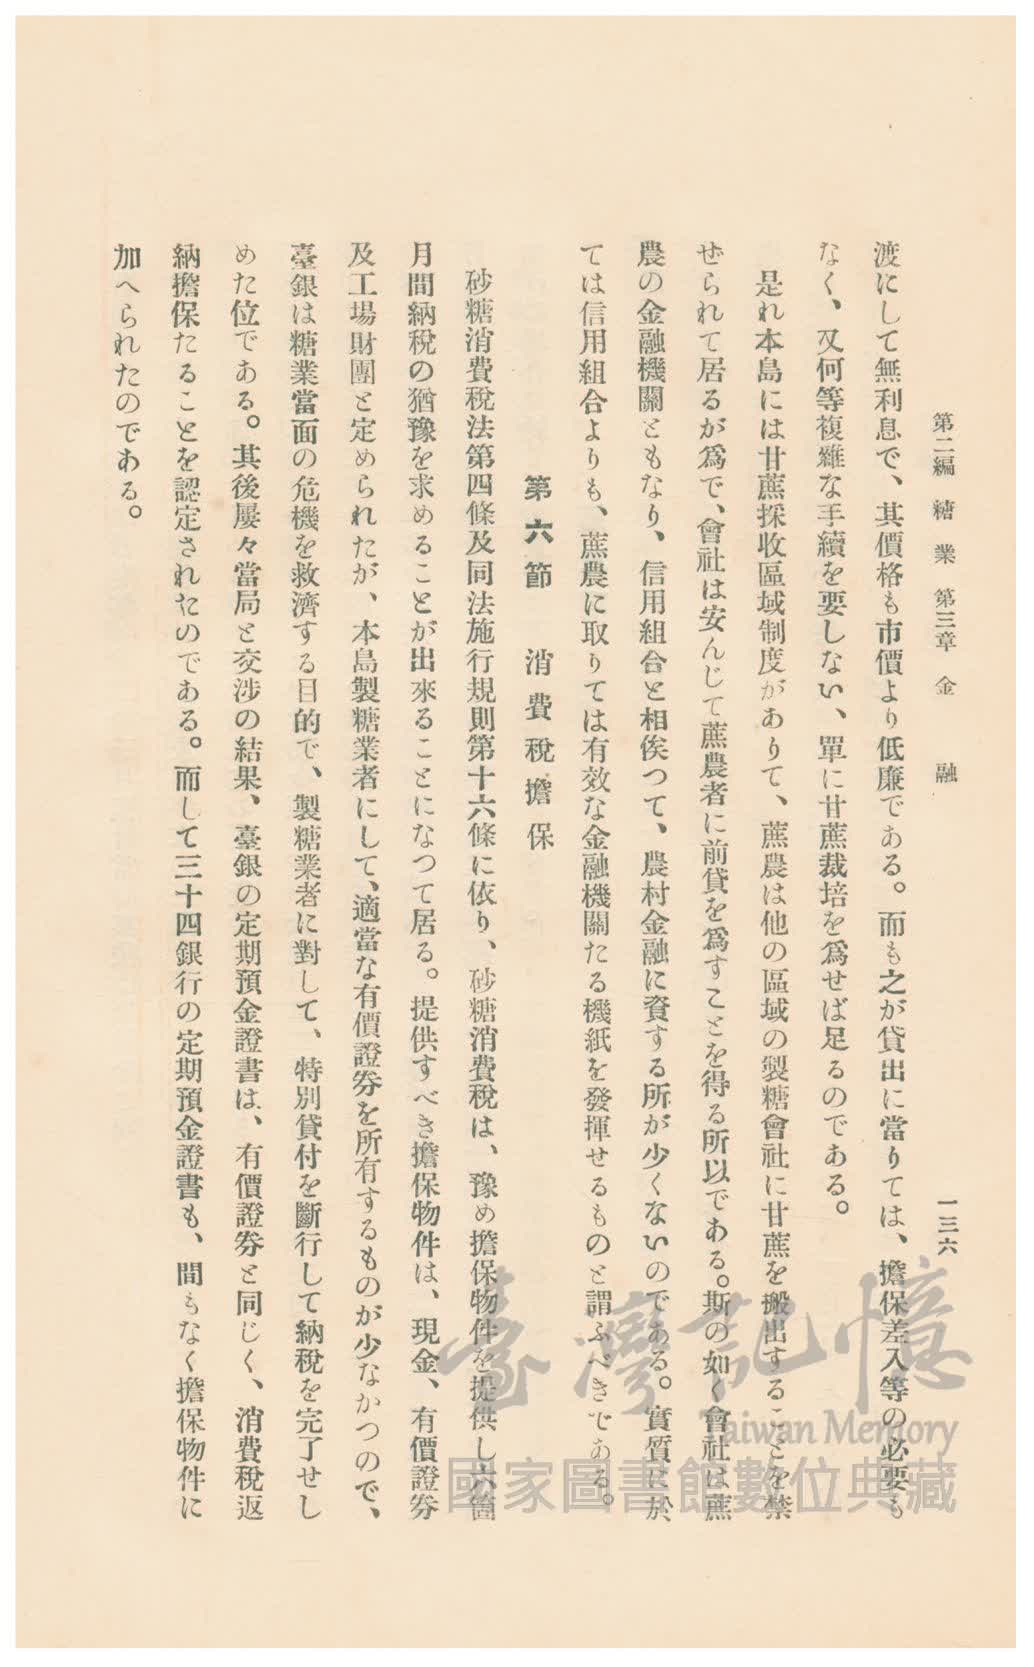 第二編 糖業 第三章 金融 一三六
渡にして無利息で、其價格も市價より低廉である。而も之が貸出に當りては、擔保差入等の必要も
なく、又何等複雜な手續を要しない、單に甘蔗栽培を爲せば足るのである。
是れ本島には甘蔗採收區域制度がありて、蔗農は他の區域の製糖會社に甘蔗を搬出することを禁
ぜられて居るが爲で、會社は安んじて蔗農者に前貸を爲すことを得る所以である。斯の如く會社は蔗
農の金融機關ともなり、信用組合と相俟つて、農村金融に資する所が少くないのである。實質に於
ては信用組合よりも、蔗農に取りては有效な金融機關たる機紙を發揮せるものと謂ふべきである。
第六節 消費稅擔保
砂糖消費稅法第四條及同法施行規則第十六條に依り、砂糖消費稅は、豫め擔保物件を提供し六箇
月間納稅の猶豫を求めることが出來ることになつて居る。提供すべき擔保物件は、現金、有價證券
及工場財團と定められたが、本島製糖業者にして、適當な有價證券を所有するものが少なかつので、
臺銀は糖業當面の危機を救濟する目的で、製糖業者に對して、特別貸付を斷行して納稅を完了せし
めた位である。其後屢々當局と交涉の結果、臺銀の定期預金證書は、有價證券と同じく、消費稅返
納擔保たることを認定されたのである。而して三十四銀行の定期預金證書も、間もなく擔保物件に
加へられたのである。
臺灣記憶
Taiwan Memory
國家圖書館數位典藏